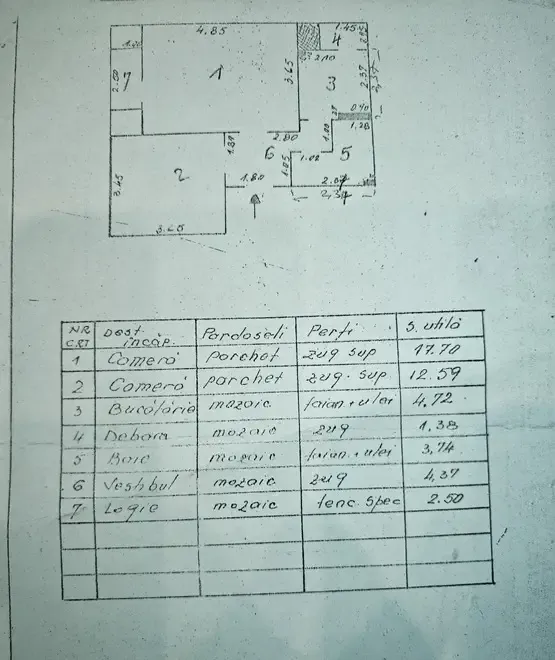 4.85
1.45
4
.95
1.20
3.65
2.10
2.37
2.37
7
2.50
1
3
0.40
1.28
1.81
2.80
6
1.00
1.02
5
1.05
2
1.80
2.37
3.45
3.65
NR CRT Dest. încăp. Pardoseli Perți S. utilă
1 Cameră parchet zug sup 17.70
2 Cameră parchet zug. sup 12.59
3 Bucătărie mozaic faian.+ulei 4,72
4 Debara mozaic zug 1,38
5 Baie mozaic faian.+ulei 3,74
6 Veshbul mozaic zug 4,37
7 Logie mozaic tenc. Spec 2.50